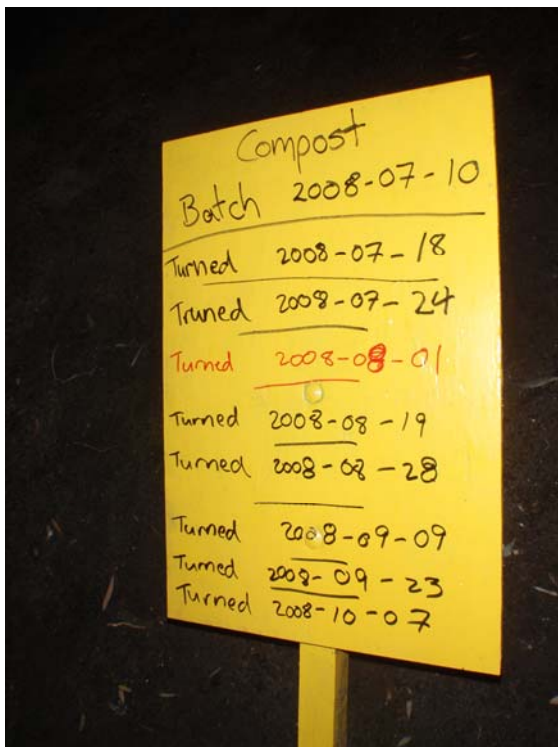 Compost
Batch 2008-07-10
Turned 2008-07-18
Truned 2008-07-24
Turned 2008-08-01
Turned 2008-08-19
Turned 2008-08-28
Turned 2008-09-09
Turned 2008-09-23
Turned 2008-10-07